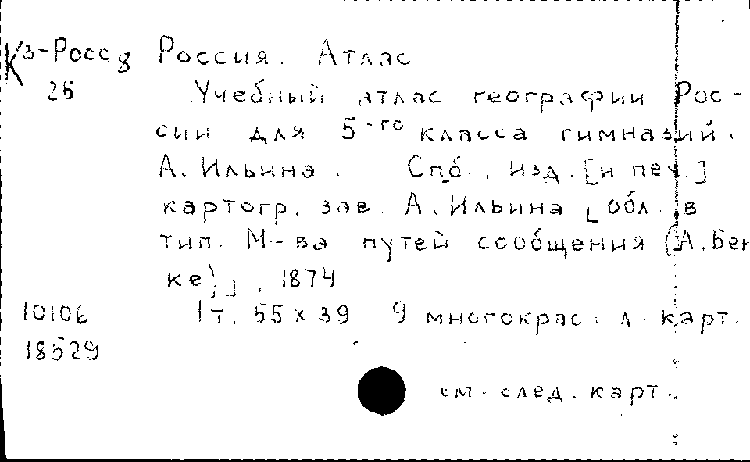 Кз-Росс 8 Россия. Атлас
26 Учебный атлас географии Рос-
сии для 5-го класса гимназий.
А. Ильина. Спб., изд. [и печ.]
картогр. зав. А. Ильина [обл. в
тип. М-ва путей сообщения (А. Бен
ке)], 1874
10106 1 т. 55 x 39 9 многокрас. л. карт.
18529
см. след. карт.